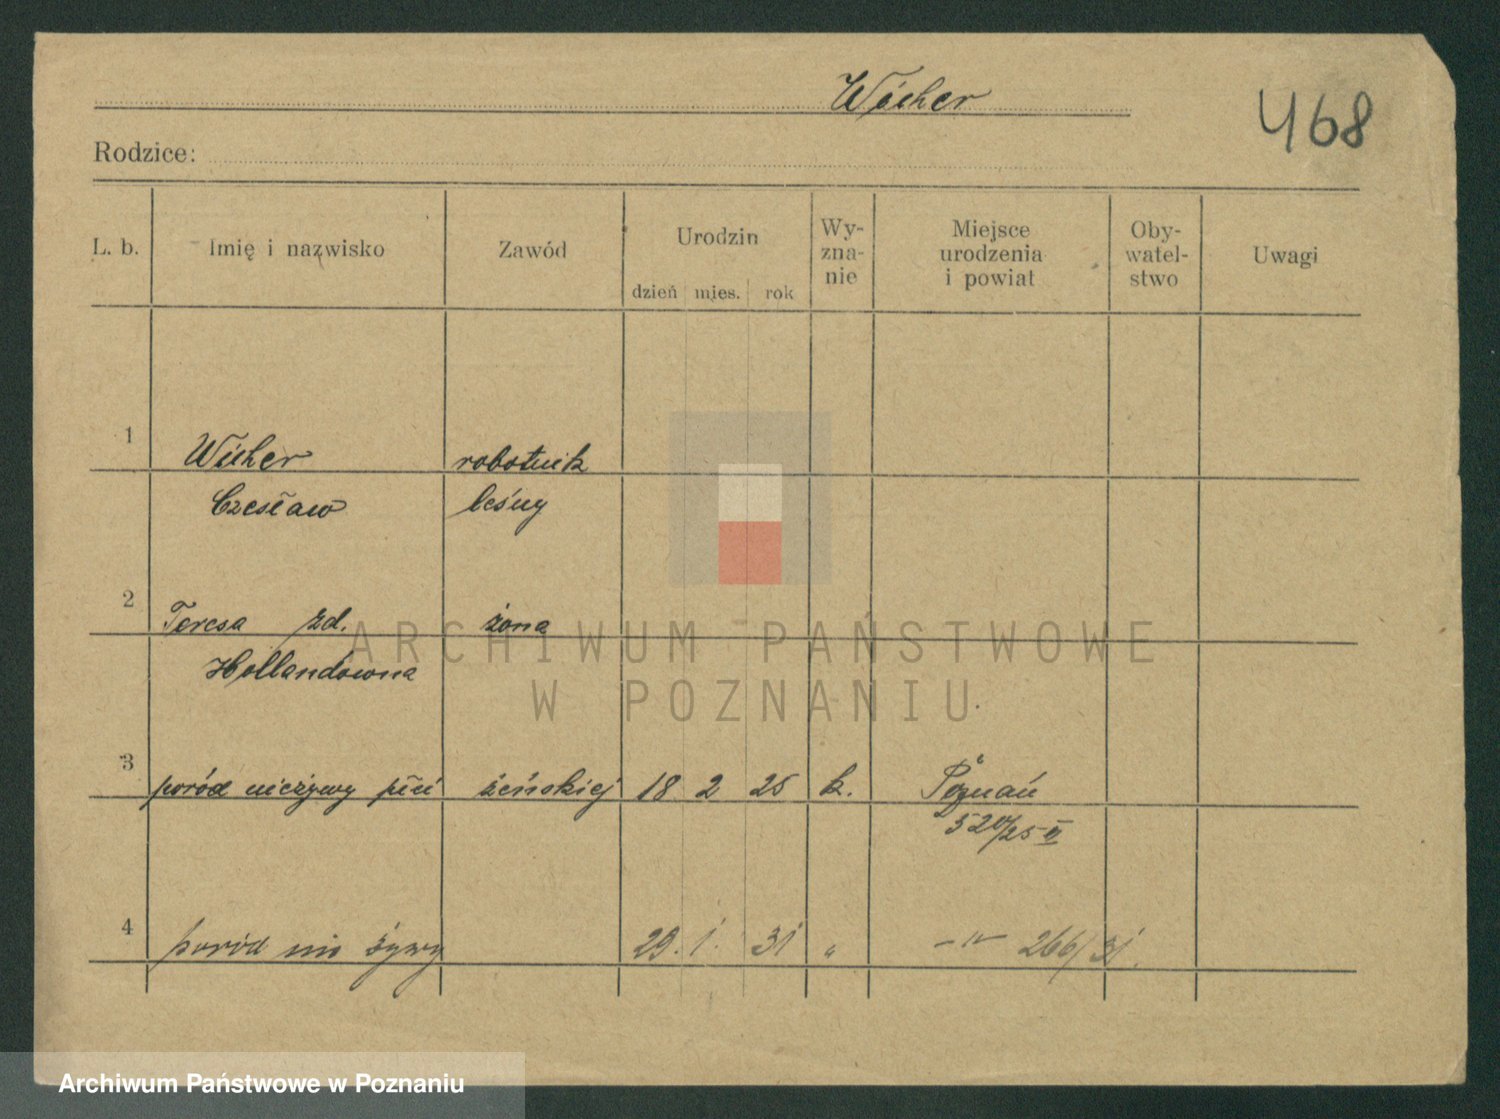 Wicher
468
Rodzice:
L. b. Imię i nazwisko Zawód Urodzin Wy- Miejsce Oby- Uwagi
zna- urodzenia watel-
nie i powiat stwo
dzień mies. rok
1 Wicher robotnik
Czesław leśny
2 Teresa zd. żona
Hollandówna
3 poród nieżywy płci żeńskiej 18 2 25 k. Poznań
520/25 II
4 poród nie żywy 29. 1. 31 " -"- 266/31.
ARCHIWUM PAŃSTWOWE
W POZNANIU
Archiwum Państwowe w Poznaniu